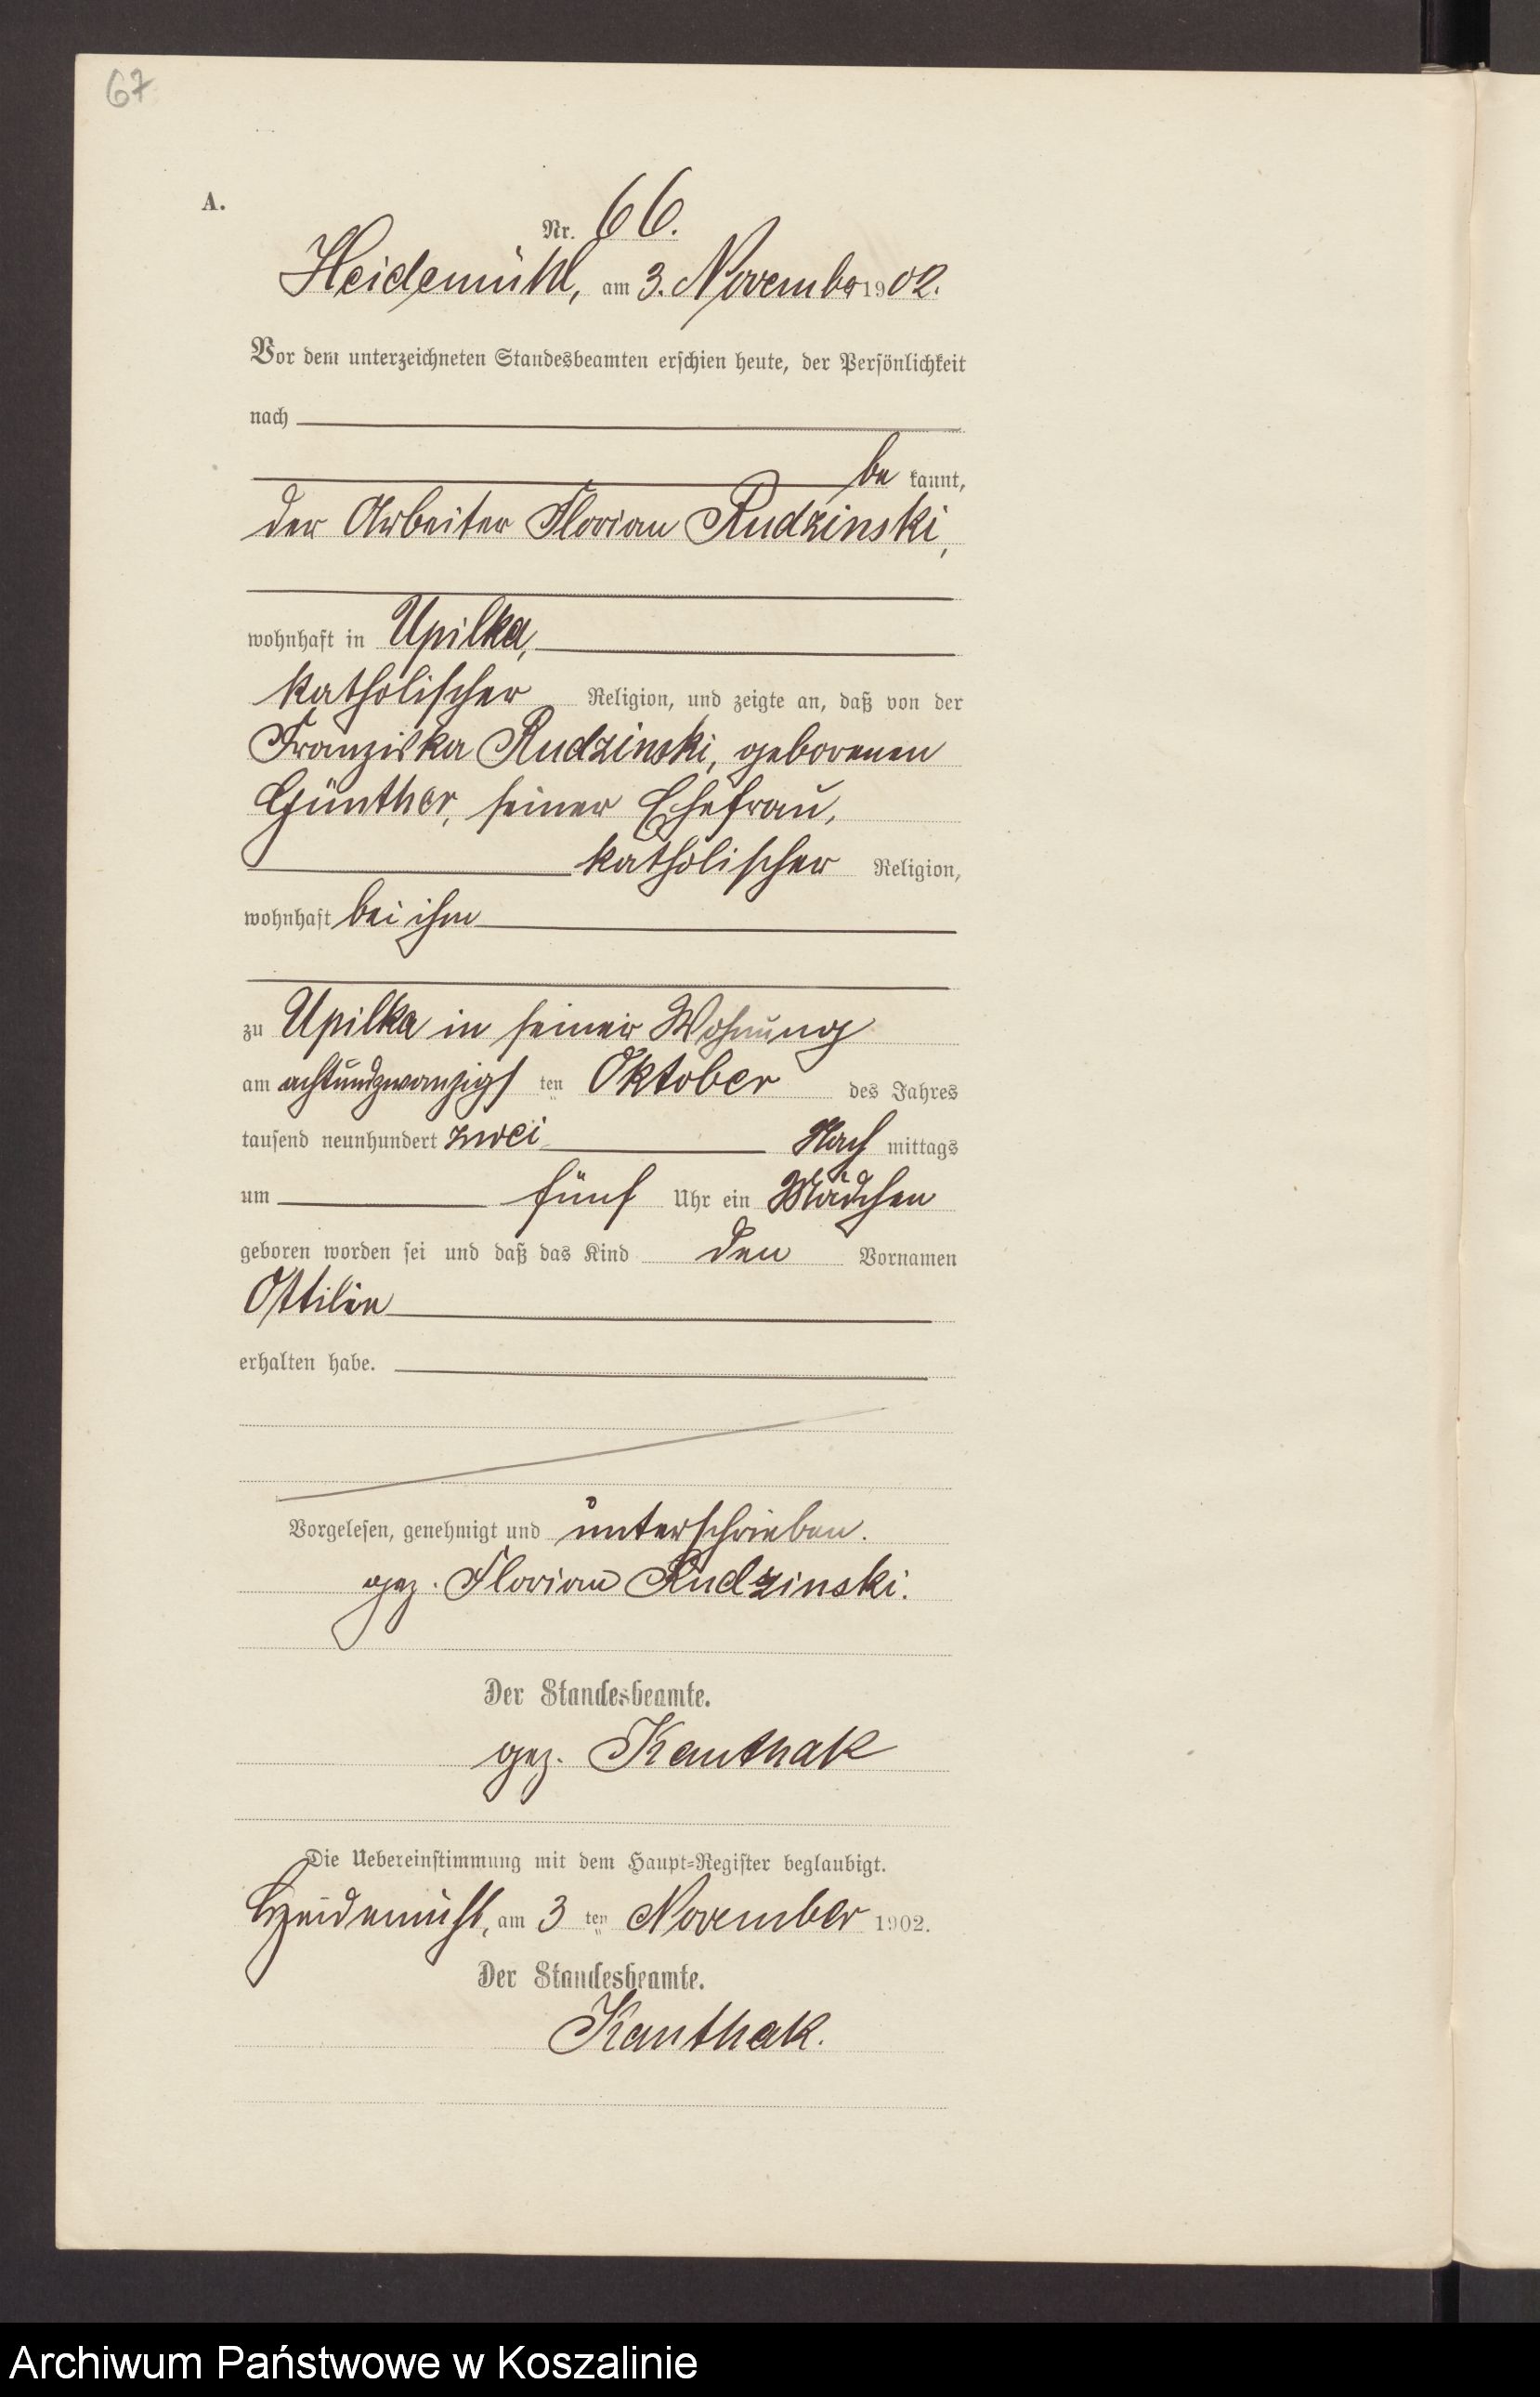 67
A.
Nr. 66.
Heidemühl, am 3. November 1902.
Vor dem unterzeichneten Standesbeamten erschien heute, der Persönlichkeit
nach
be kannt,
der Arbeiter Florian Rudzinski,
wohnhaft in Upilka,
katholischer Religion, und zeigte an, daß von der
Franziska Rudzinski, geborenen
Günther, seiner Ehefrau,
katholischer Religion,
wohnhaft bei ihm
zu Upilka in seiner Wohnung
am achtundzwanzigs ten Oktober des Jahres
tausend neunhundert zwei Nach mittags
um fünf Uhr ein Mädchen
geboren worden sei und daß das Kind den Vornamen
Ottilie
erhalten habe.
Vorgelesen, genehmigt und unterschrieben.
gez. Florian Rudzinski.
Der Standesbeamte.
gez. Kanthak
Die Uebereinstimmung mit dem Haupt-Register beglaubigt.
Heidemühl, am 3 ten November 1902.
Der Standesbeamte.
Kanthak.
Archiwum Państwowe w Koszalinie